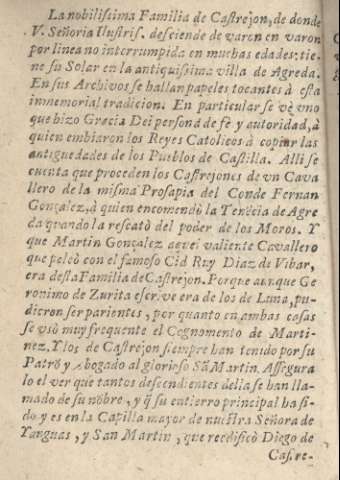 La nobilissima Familia de Castrejon, de donde
V. Señoria Ilustris. desciende de varon en varon
por linea no interrumpida en muchas edades: tie-
ne su Solar en la antiquissima villa de Agreda.
En sus Archivos se hallan papeles tocantes à esta
innemorial tradicion. En particular se vè vno
que hizo Gracia Dei persona de fè y autoridad, à
quien embiaron los Reyes Catolicos à copiar las
antiguedades de los Pueblos de Castilla. Alli se
cuenta que proceden los Castrejones de vn Cava
llero de la misma Prosapia del Conde Fernan
Gonçalez, à quien encomendò la Tenẽcia de Agre
da quando la rescatò del poder de los Moros. Y
que Martin Gonçalez aquel valiente Cavallero
que peleò con el famoso Cid Ruy Diaz de Vibar,
era desta Familia de Castrejon. Porque aunque Ge
ronimo de Zurita escrive era de los de Luna, pu-
dieron ser parientes, por quanto en ambas casas
se viò muy frequente el Cognomento de Marti-
nez. Y los de Castrejon siempre han tenido por su
Patrõ y Abogado al glorioso Sã Martin. Assegura
lo el ver que tantos descendientes della se han lla-
mado de su nõbre, y q̃ su entierro principal ha si-
do y es en la Capilla mayor de nuestra Señora de
Yanguas, y San Martin, que reedificò Diego de
Castre-